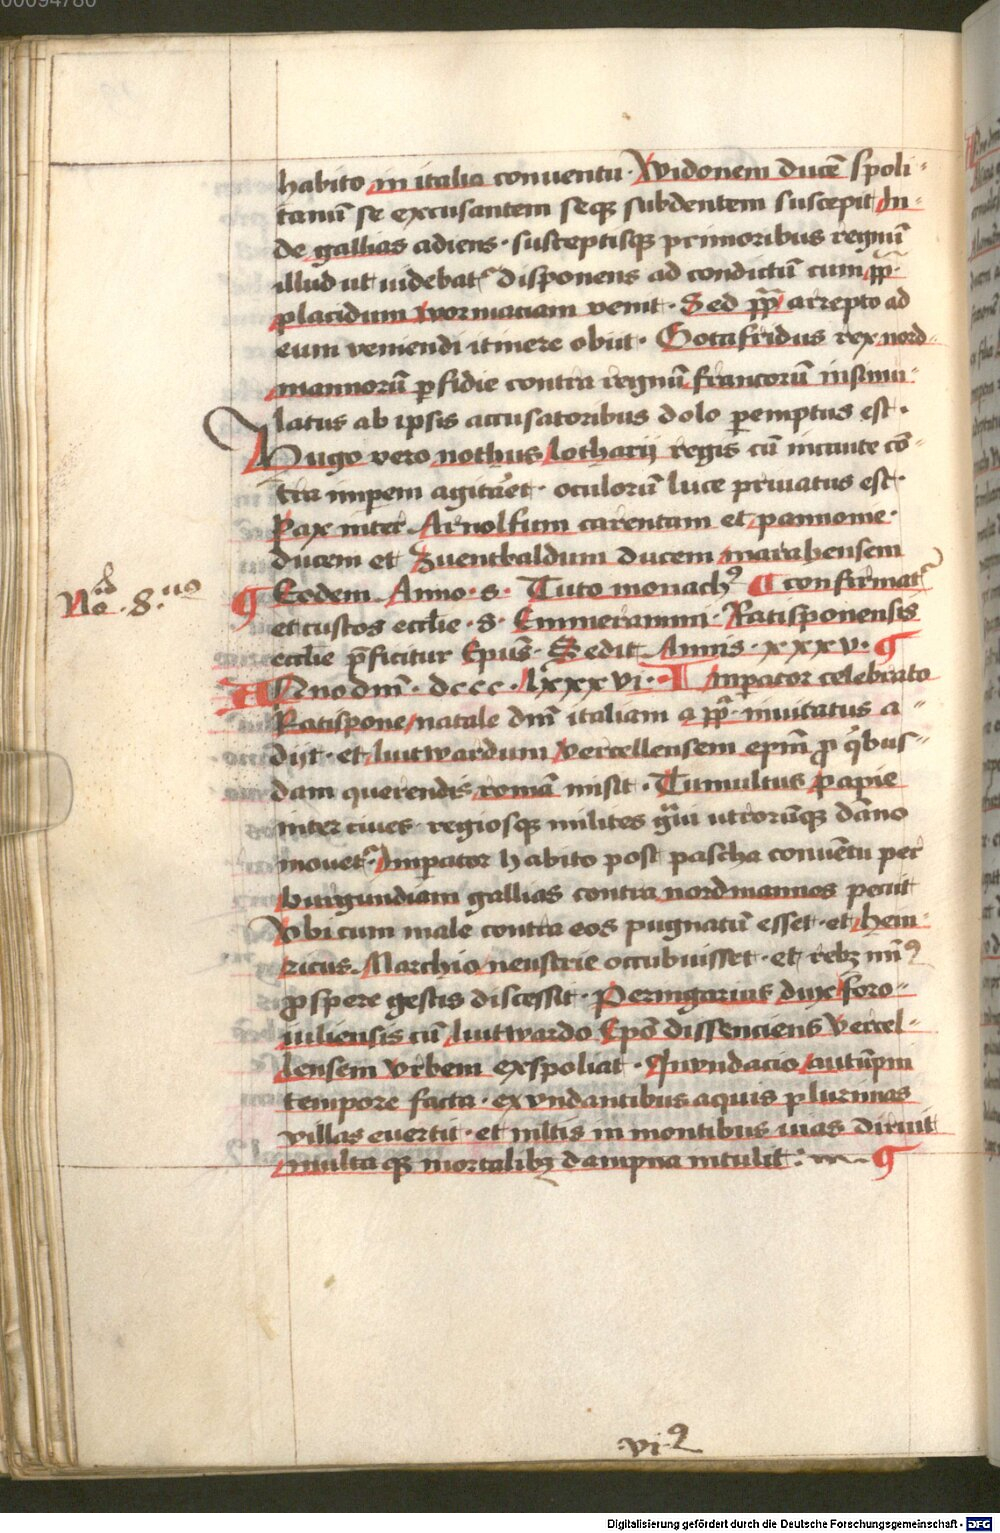 00094780
habito in italia conuentu · Widonem ducē spoli-
tanū se excusantem seqȝ subdentem suscepit In-
de gallias adiens · susceptisqȝ primoribus regnū
illud ut uidebatr disponens ad condictū cum pp̄ ·
placidum Wormaciam venit · Sed pp̄ arrepto ad
eum veniendi itinere obijt · Gotafridus rex nord-
mannorū ꝑfidie contra regnū francorū insimu-
latus ab ipsis accusatoribus dolo ꝑemptus est ·
Hugo vero nothus lotharij regis cū incaute cō-
tra imperm agitaret · oculorū luce priuatus est ·
Pax inter Arnolfum carentam et pannonie ·
ducem et Zuentbaldum ducem marahensem
Eodem Anno · s · Tuto monachꝰ ¶ confirmatr
No · 8uo
et custos eccl̄ie · S · Emmerammi · Ratisponensis
eccl̄ie p̄ficitur Epūs · Sedit Annis · xxxv · ¶
Anno dm̄ · dccc · lxxxvi · Imꝑator celebrato
Ratispone natale dm̄ italiam a pp̄ · inuitatus a-
dijt · et luitwardum vercellensem epm̄ ꝓ qibus-
dam querendis romā misit · Tumultus papie
inter ciues regiosqȝ milites gͣui utrorūqȝ dāno
mouetr · Imperator habito post pascha conuētu per
burgundiam gallias contra nordmannos petit
Vbi cum male contra eos pugnatū esset · et hein-
ricus Marchio neustrie occubuisset · et rebȝ mīꝰ
ꝓspere gestis discessit · Peringarius dux foro-
iuliensis cū luitwardo Epō dissenciens Vercel-
lensem vrbem exspoliat · Inundacio autūpni
tempore facta · exvndantibus aquis plurimas
villas euertit · et mltis in montibus uias diruit
multa qȝ mortalibȝ dampna intulit : ¶
· vi · ꝰ
Digitalisierung gefördert durch die Deutsche Forschungsgemeinschaft - DFG